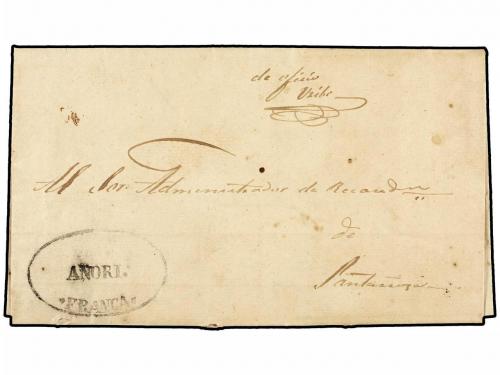 de oficio
Uribe
Al Sor. Administrador de Recaudon
de
ANORI.
FRANCA